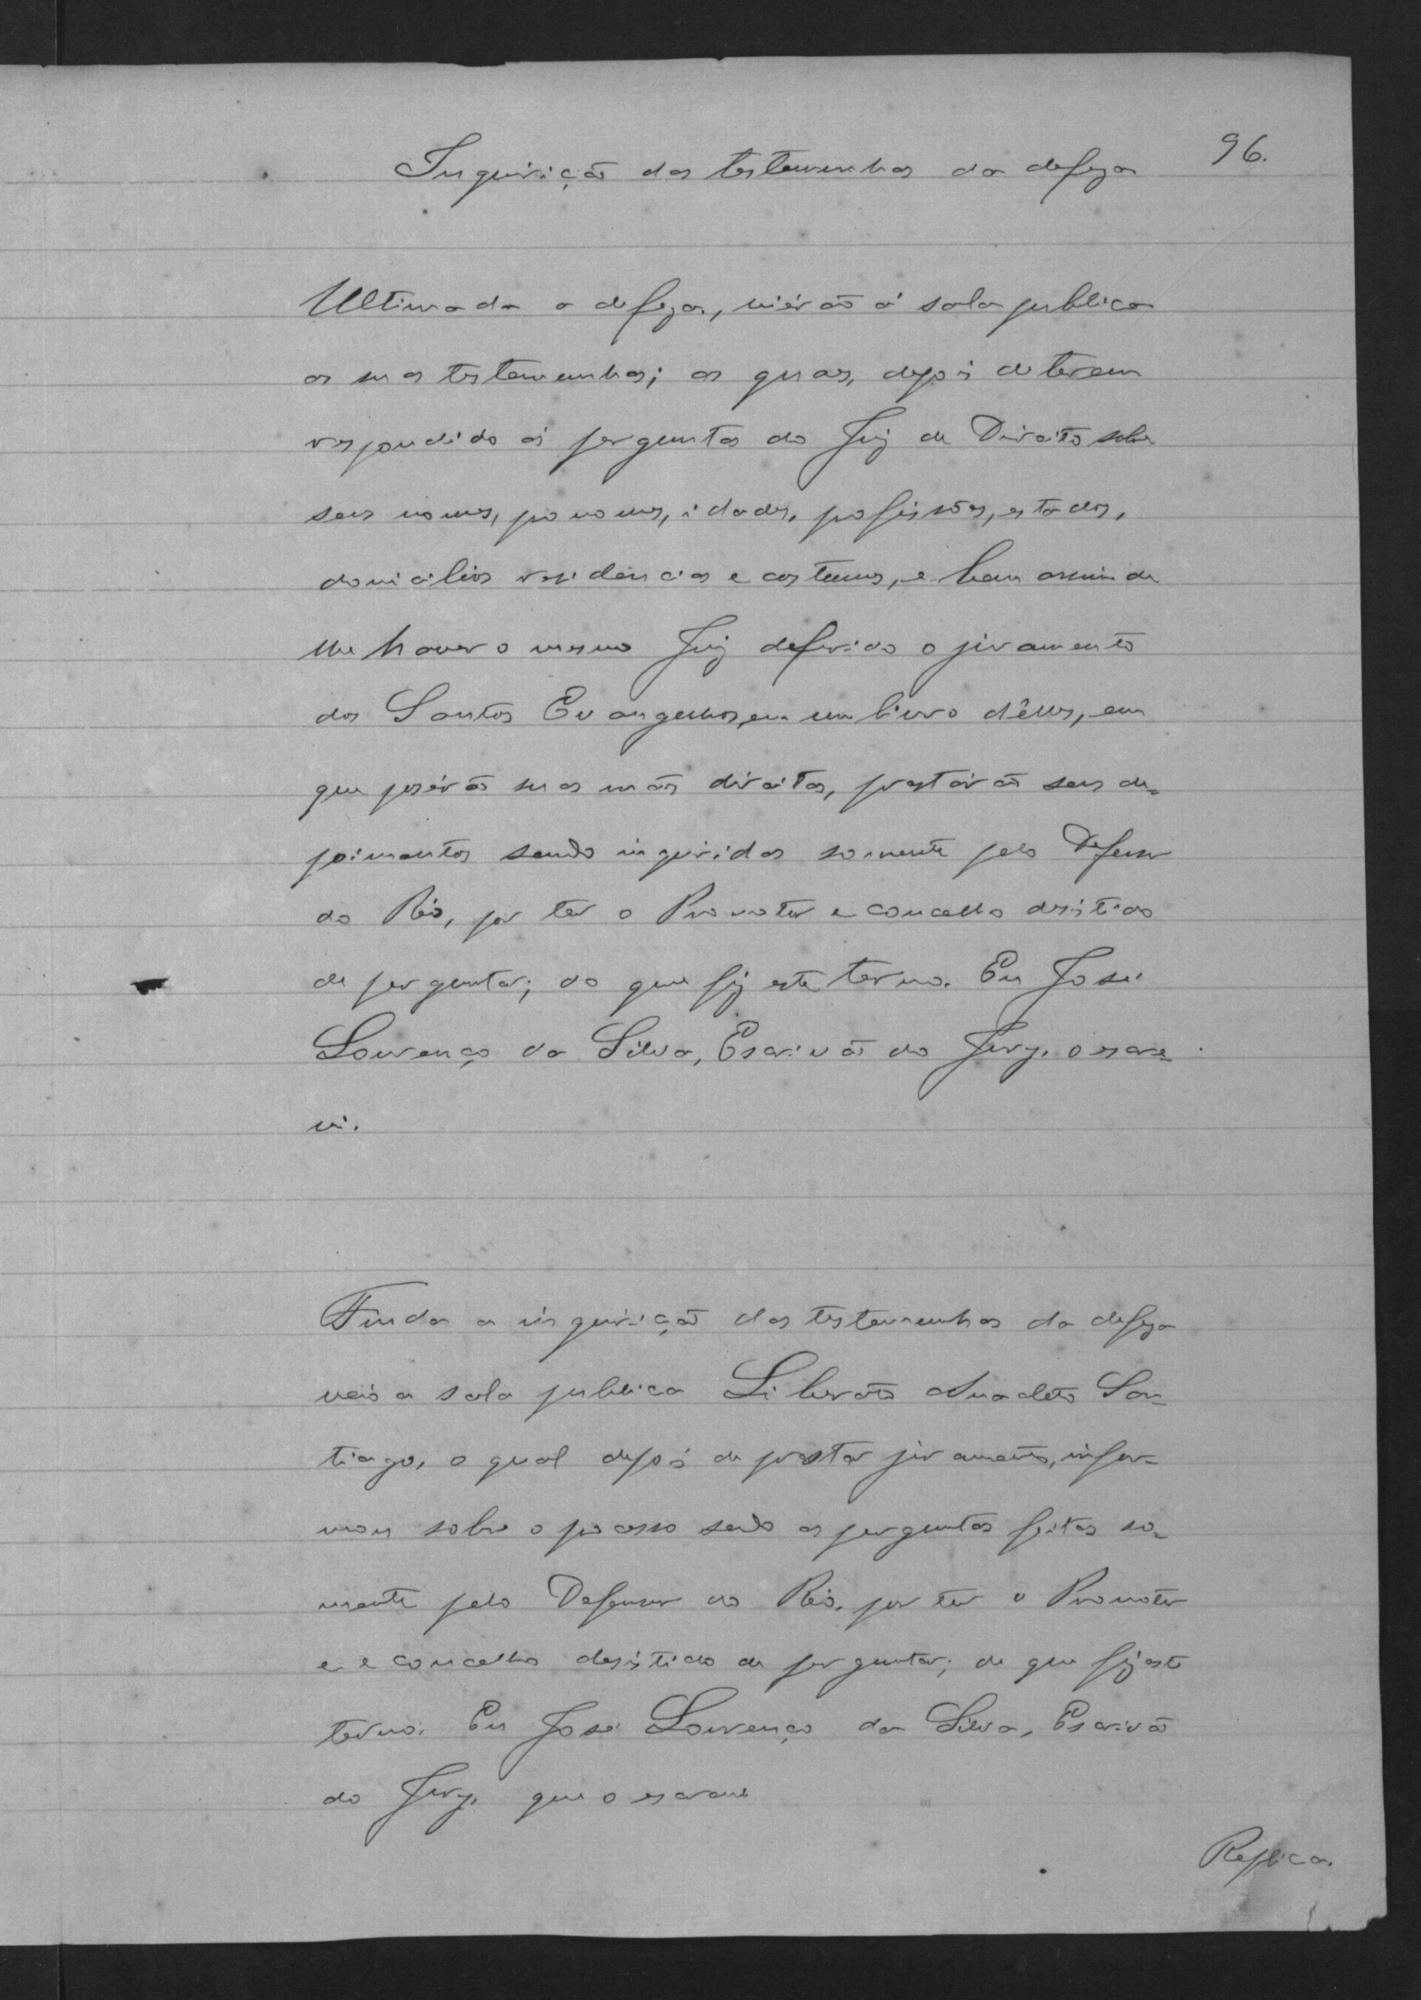 96.
Inquirição das testemunhas da defeza
Ultimada a defeza, viérão á sala publica
as suas testemunhas; as quaes, depois de terem
respondido ás perguntas do Juiz de Direito sobre
seus nomes, pronomes, idades, profissões, estados,
domicilios residencias e costumes, e bem assim de
lhe haver o mesmo Juiz deferido o juramento
dos Santos Evangelhos, em um livro dêlles, em
que poserão suas mãos direitas, prestárão seus de-
poimentos sendo inqueridas somente pelo Defensor
do Réo, por ter o Promotor e concelho desistido
de perguntar; do que fiz este termo. Eu José
Lourenço da Silva, Escrivão do Jury, o escre-
vi.
Finda a inquirição das testemunhas da defeza
veio a sala publica Liberato Anacleto San-
tiago, o qual depois de prestar juramento, infor-
mou sobre o processo sendo as perguntas feitas so-
mente pelo Defensor do Réo, por ter o Promotor
e e concelho desistido de perguntar; de que fiz este
termo. Eu José Lourenço da Silva, Escrivão
do Jury, que o escrevi
Replica.